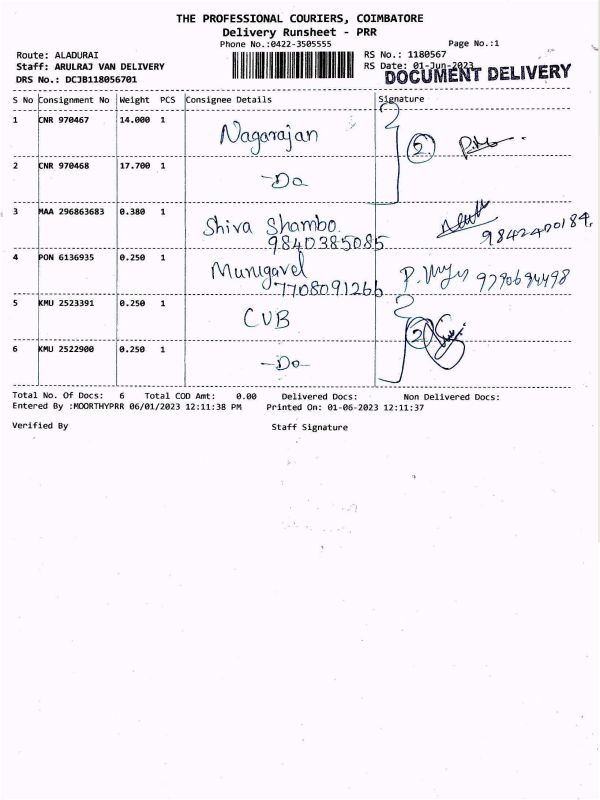 THE PROFESSIONAL COURIERS, COIMBATORE
Delivery Runsheet - PRR
Phone No.:0422-3505555 Page No.:1
Route: ALADURAI RS No.: 1180567
Staff: ARULRAJ VAN DELIVERY RS Date: 01-Jun-2023
DRS No.: DCJB118056701 DOCUMENT DELIVERY
S No Consignment No Weight PCS Consignee Details Signature
1 CNR 970467 14.000 1 Nagarajan 2
2 CNR 970468 17.700 1 -Do
3 MAA 296863683 0.380 1 Shiva Shambo.
9840385085 9842400184,
4 PON 6136935 0.250 1 Murugavel
7708091266 9790694498
5 KMU 2523391 0.250 1 CUB 2
6 KMU 2522900 0.250 1 -Do-
Total No. Of Docs: 6 Total COD Amt: 0.00 Delivered Docs: Non Delivered Docs:
Entered By :MOORTHYPRR 06/01/2023 12:11:38 PM Printed On: 01-06-2023 12:11:37
Verified By Staff Signature